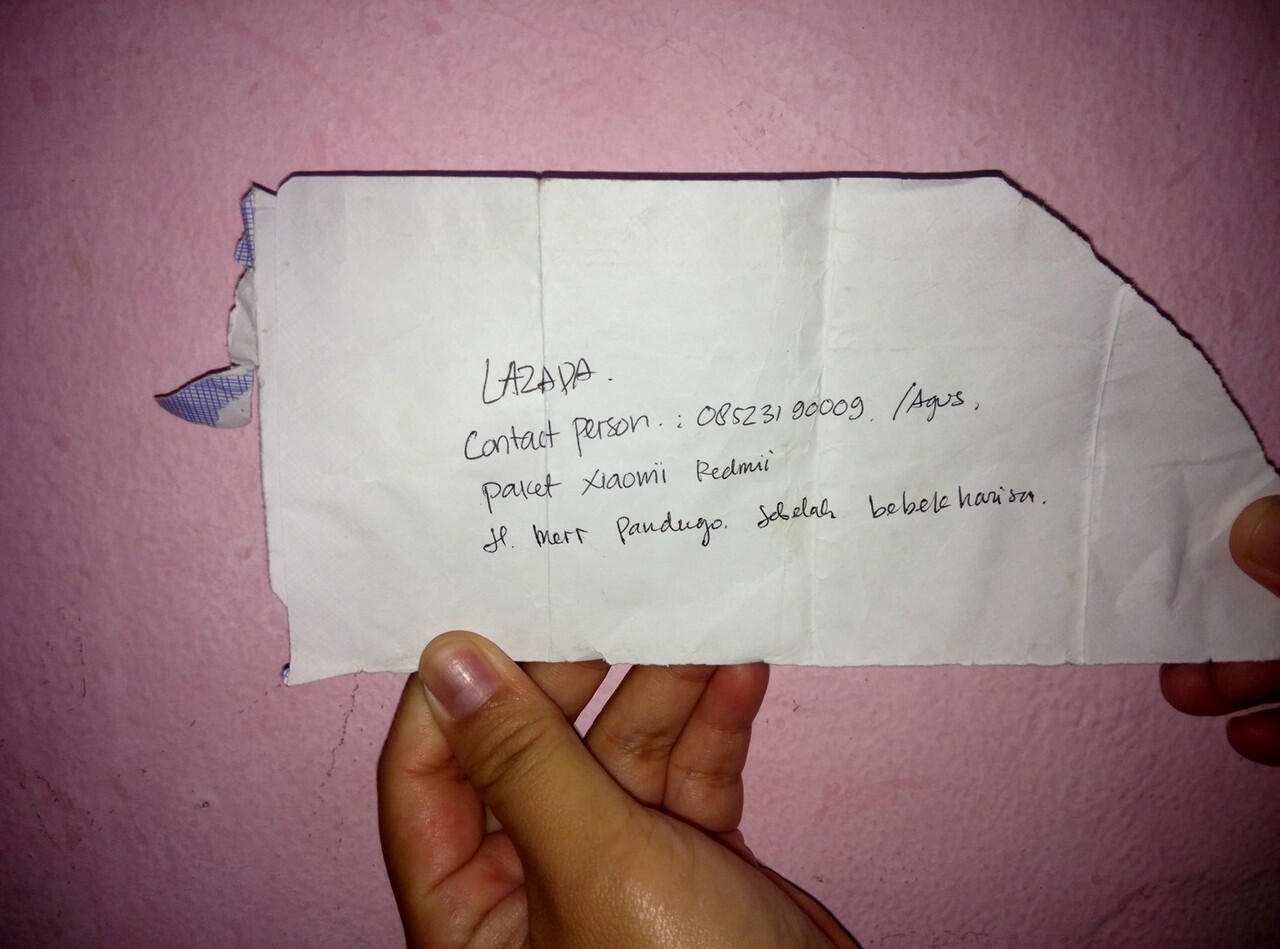 LAZADA.
Contact person. : 08523190009. /Agus,
paket xiaomii Redmii
Jl. Merr Pandugo. Sebelah bebek harisa.